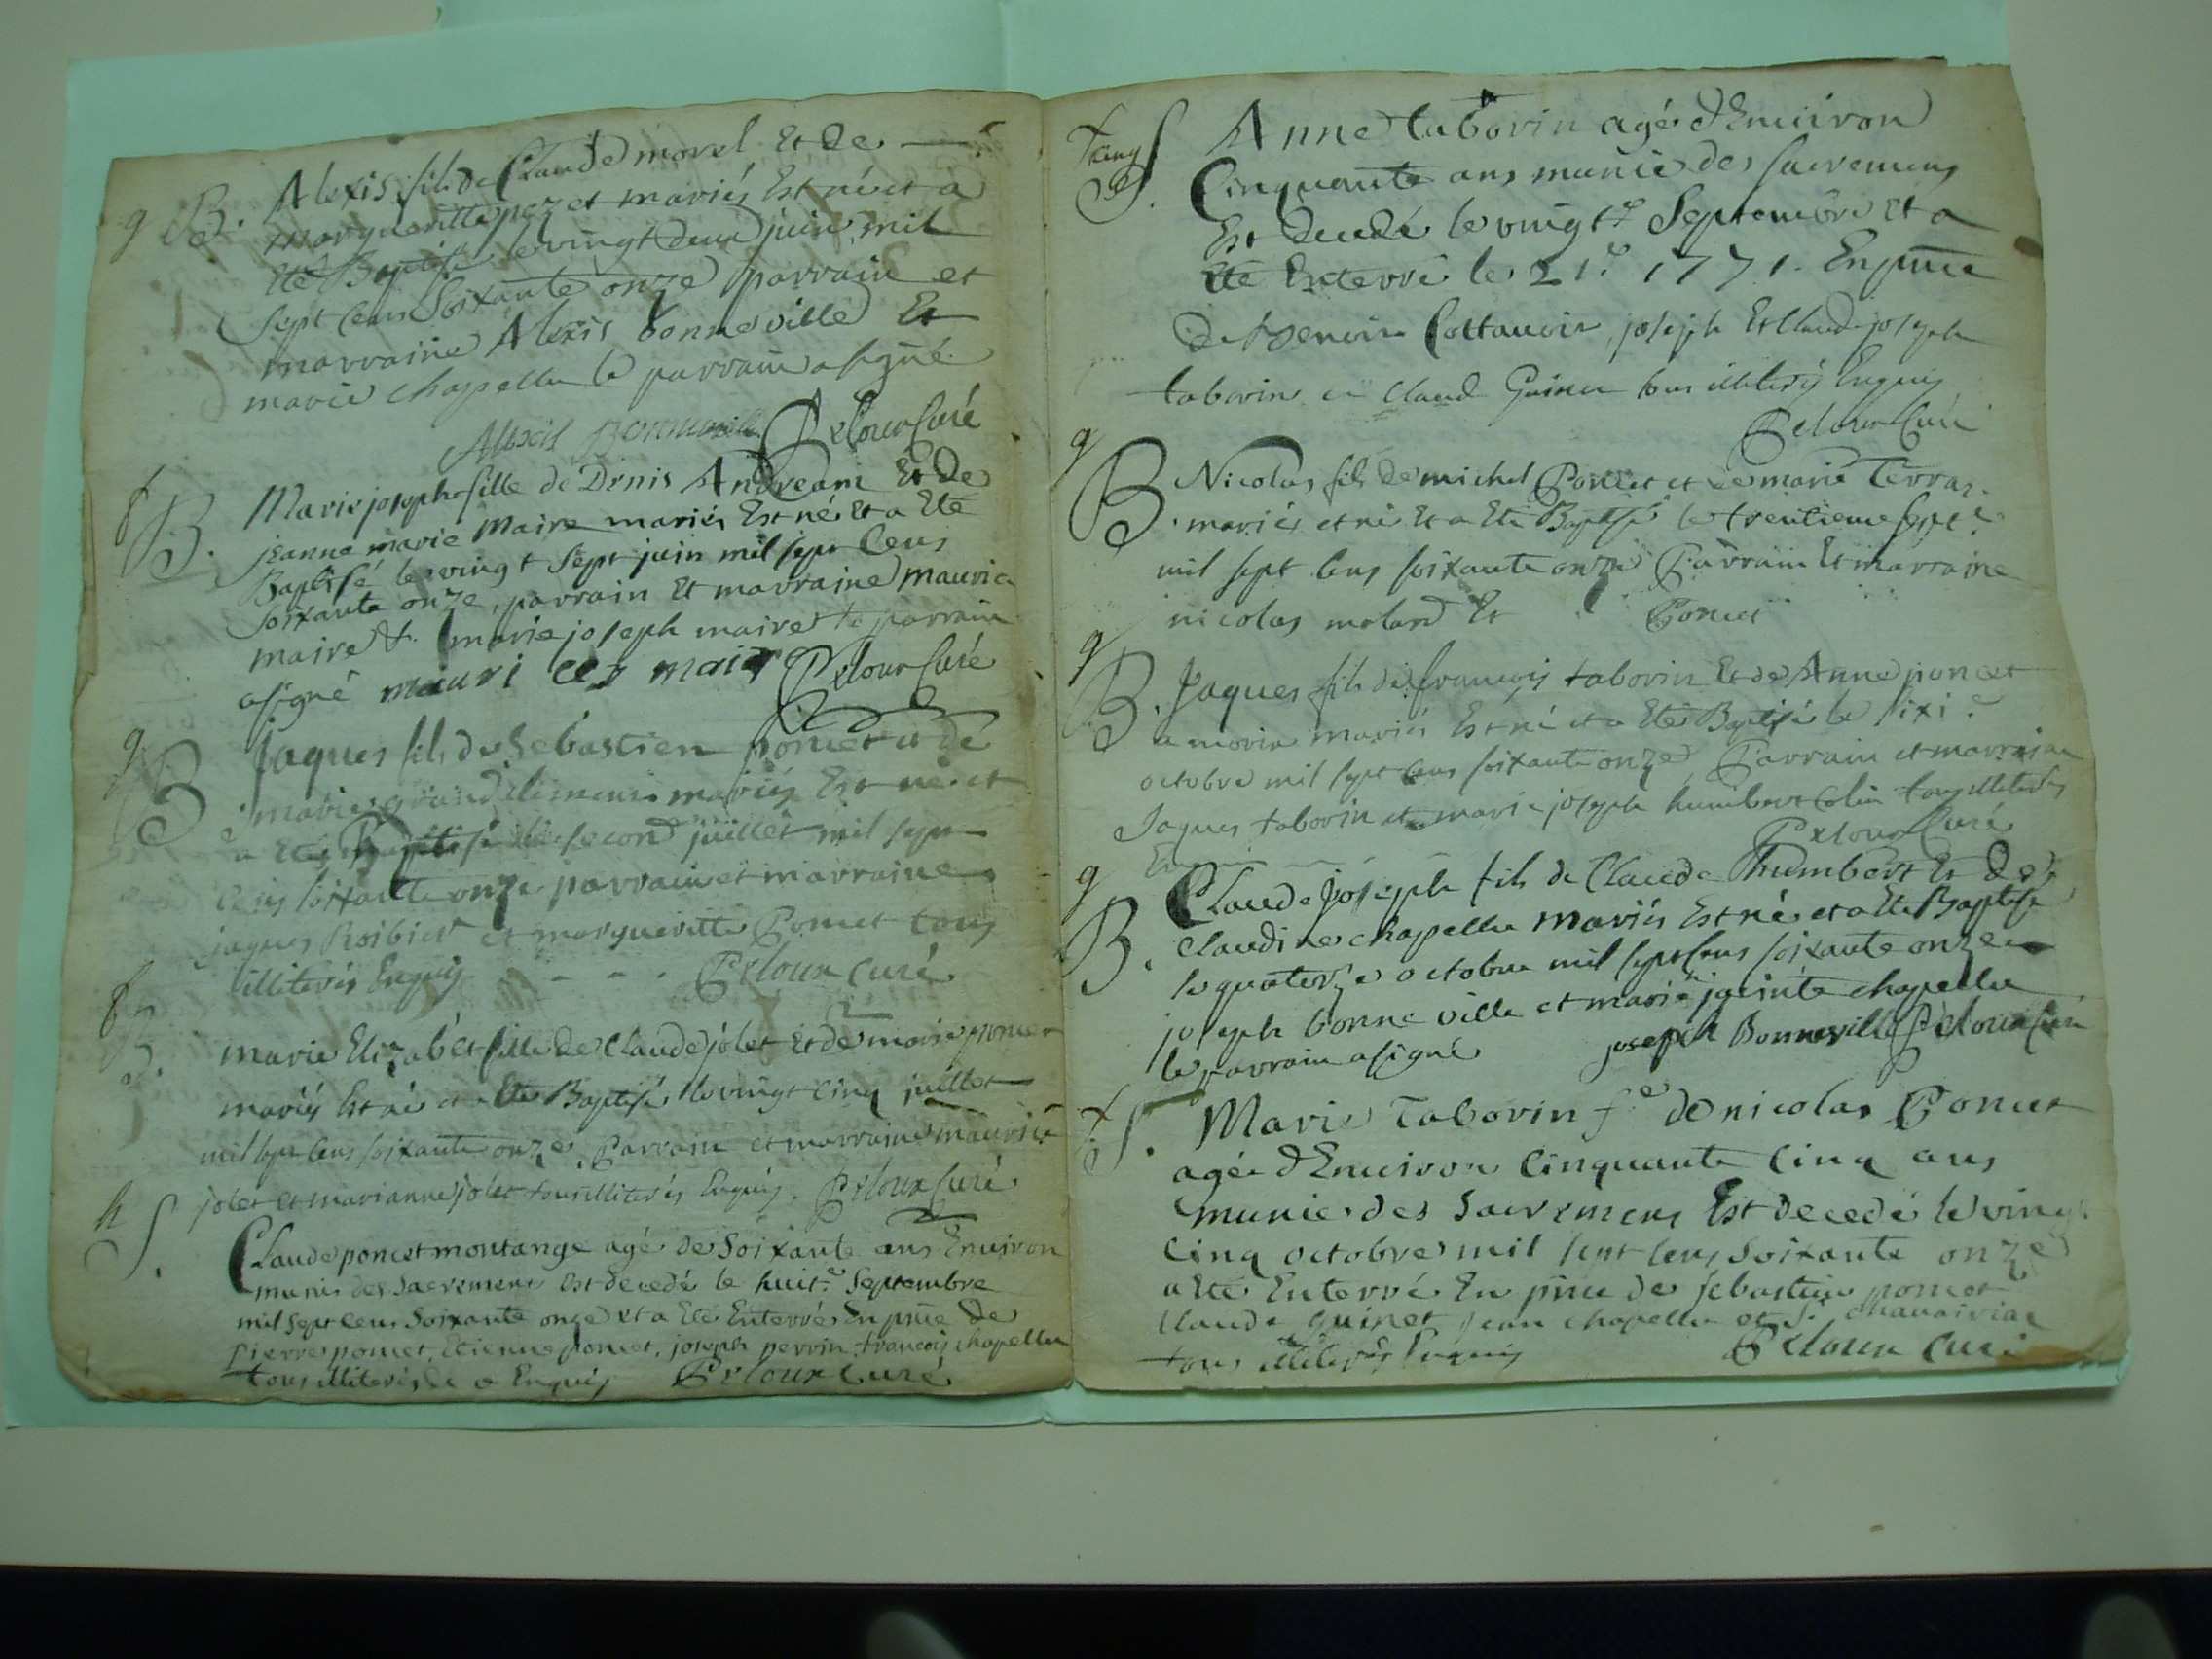 g B. Alexis fils de Claude morel Et De
margueritte pozet mariés Est né et a
Eté Baptisé le vingt deux juin mil
sept Cens Soixante onze parrain et
marraine Alexis bonneville Et
marie chapellu le parrain a signé
Alexis Bonneville Peloux Curé
f B. Marie josephe fille de Denis Andreani Et De
jeanne marie Maire mariés Est né Et a Eté
Baptisé le vingt Sept juin mil sept Cens
Soixante onze, parrain Et marraine mauric
maire & marie joseph maire le parrain
a signé mauri ces maire Peloux Curé
g B Jaques fils de Sebastien poncet et de
marie grand clement mariés Est né et
a Eté Baptisé le second juillet mil sept
Cens soixante onze parrain et marraine
jaques Roibier et margueritte Poncet tous
illiterés Enquis - - - Peloux Curé
f B. marie Elizabet fille de Claude jolet Et de marie poncet
mariés Est né et a Eté Baptisé le vingt Cinq juillet
mil sept Cens soixante onze Parrain et marraine maurice
jolet et marianne jolet tous illiterés Enquis. Peloux Curé
h S. Claude poncet montange agé de Soixante ans Environ
munis des Sacremens Est decedé le huit.e Septembre
mil Sept Cens Soixante onze et a Eté Enterré En pñce de
pierre poncet, Etienne poncet, joseph perrin, francois chapellu
tous illiterés Enquis Peloux Curé
S. Anne taborin agé d'Environ
Cinquante ans munie des sacremens
Est decedé le vingt.e Septembre Et a
Eté Enterré le 21.e 1771. En pñce
De Cottavoir, joseph Et Claude joseph
taborin et Claud Guinet tous illiterés Enquis
Peloux Curé
g B. Nicolas fils de michel Poncet et de marie Terraz
mariés et né Et a Eté Baptisé le trentieme sept.e
mil sept Cens soixante onze Parrain Et marraine
nicolas molard Et Poncet
g B. Jaques fils de francois taborin Et de Anne poncet
a morin mariés Est né et a Eté Baptisé le sixi.e
octobre mil sept Cens soixante onze Parrain et marraine
Jaques taborin et marie joseph humbert Colin tous illiterés
Enquis Peloux Curé
g B. Claude Joseph fils de Claude humbert Et De
Claudine chapellu mariés Est né et a Eté Baptisé
le quatorze octobre mil sept Cens soixante onze
joseph bonne ville et marie jacinte chapellu
le parrain a signé joseph Bonneville Peloux Curé
S. Marie Taborin f.e de nicolas Poncet
agée d'Environ Cinquante Cinq ans
munie des Sacremens Est decedé le vingt
Cinq octobre mil sept Cens Soixante onze
a Eté Enterré En pñce de sebastien poncet
Claude guinet jean chapellu et
tous illiterés Enquis Peloux Curé